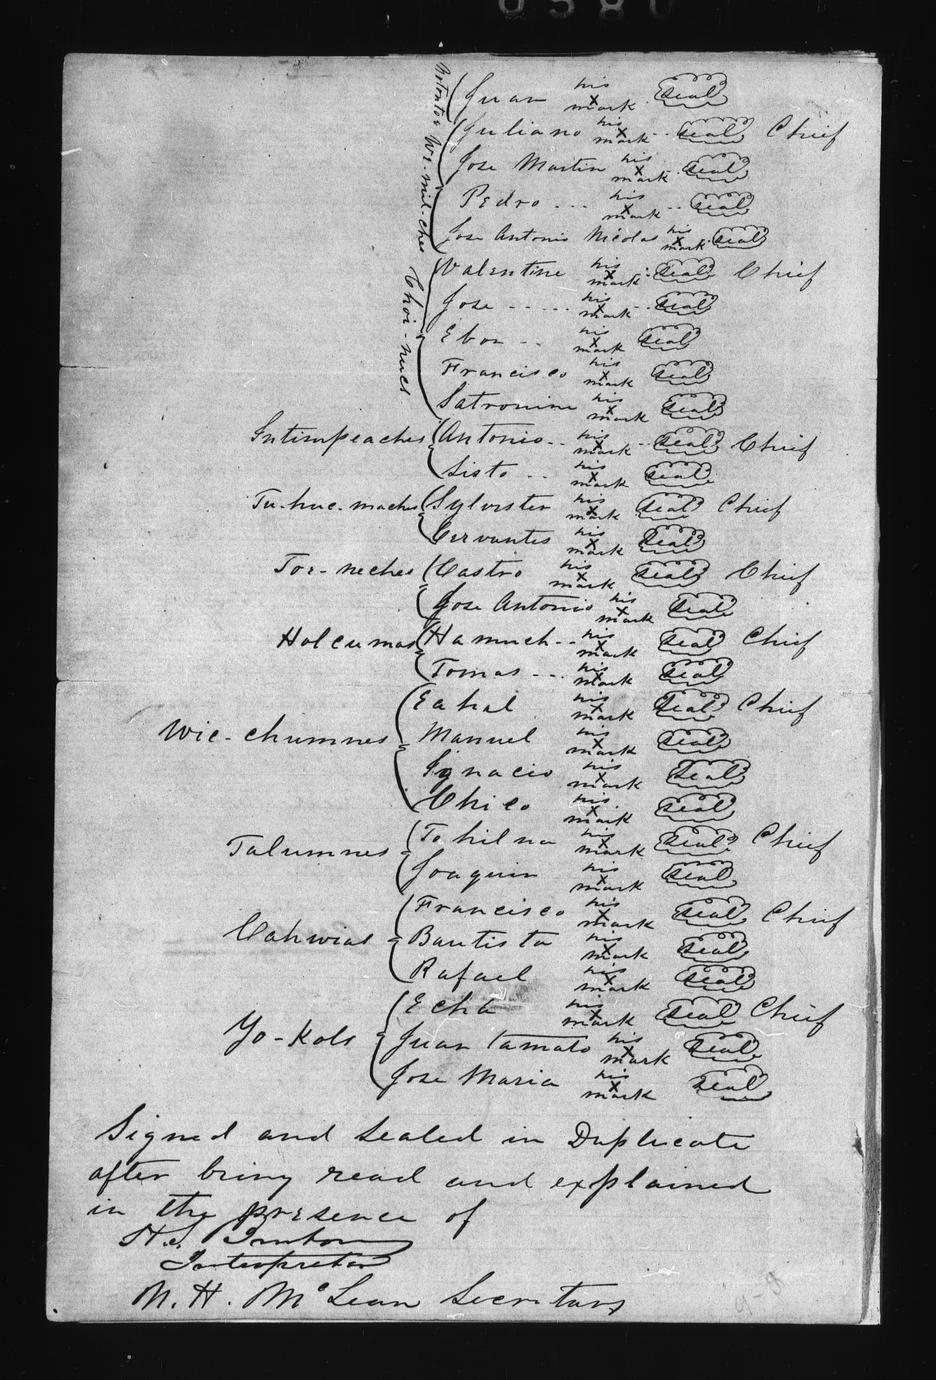 Juan his x mark seal
Juliano his x mark seal Chief
Jose Martin his x mark seal
Pedro ... his x mark .. seal
Jose Antonio Nicolas his x mark seal
Wi-mil-ches
Valentine his x mark seal Chief
Jose ..... his x mark .. seal
Ebon .. his x mark seal
Francisco his x mark seal
Satronine his x mark seal
Choi-nucs
Intimpeaches Antonio .. his x mark .. seal Chief
Sisto .. his x mark seal
Tu-huc-maches Sylvester his x mark seal Chief
Cervantes his x mark seal
Toe-neches Castro his x mark seal Chief
Jose Antonio his x mark seal
Holcumas Hamuch .. his x mark seal Chief
Tomas ... his x mark seal
Eahal his x mark seal Chief
Wic-chumnes Manuel his x mark seal
Ignacio his x mark seal
Chico his x mark seal
Talumnes Tohilna his x mark seal Chief
Joaquin his x mark seal
Francisco his x mark seal Chief
Cahwias Bautista his x mark seal
Rafael his x mark seal
Echa his x mark seal Chief
Yo-Kols Juan Tamato his x mark seal
Jose Maria his x mark seal
Signed and sealed in Duplicate
after being read and explained
in the presence of
Interpreter
N. H. McLean Secretary
9-8